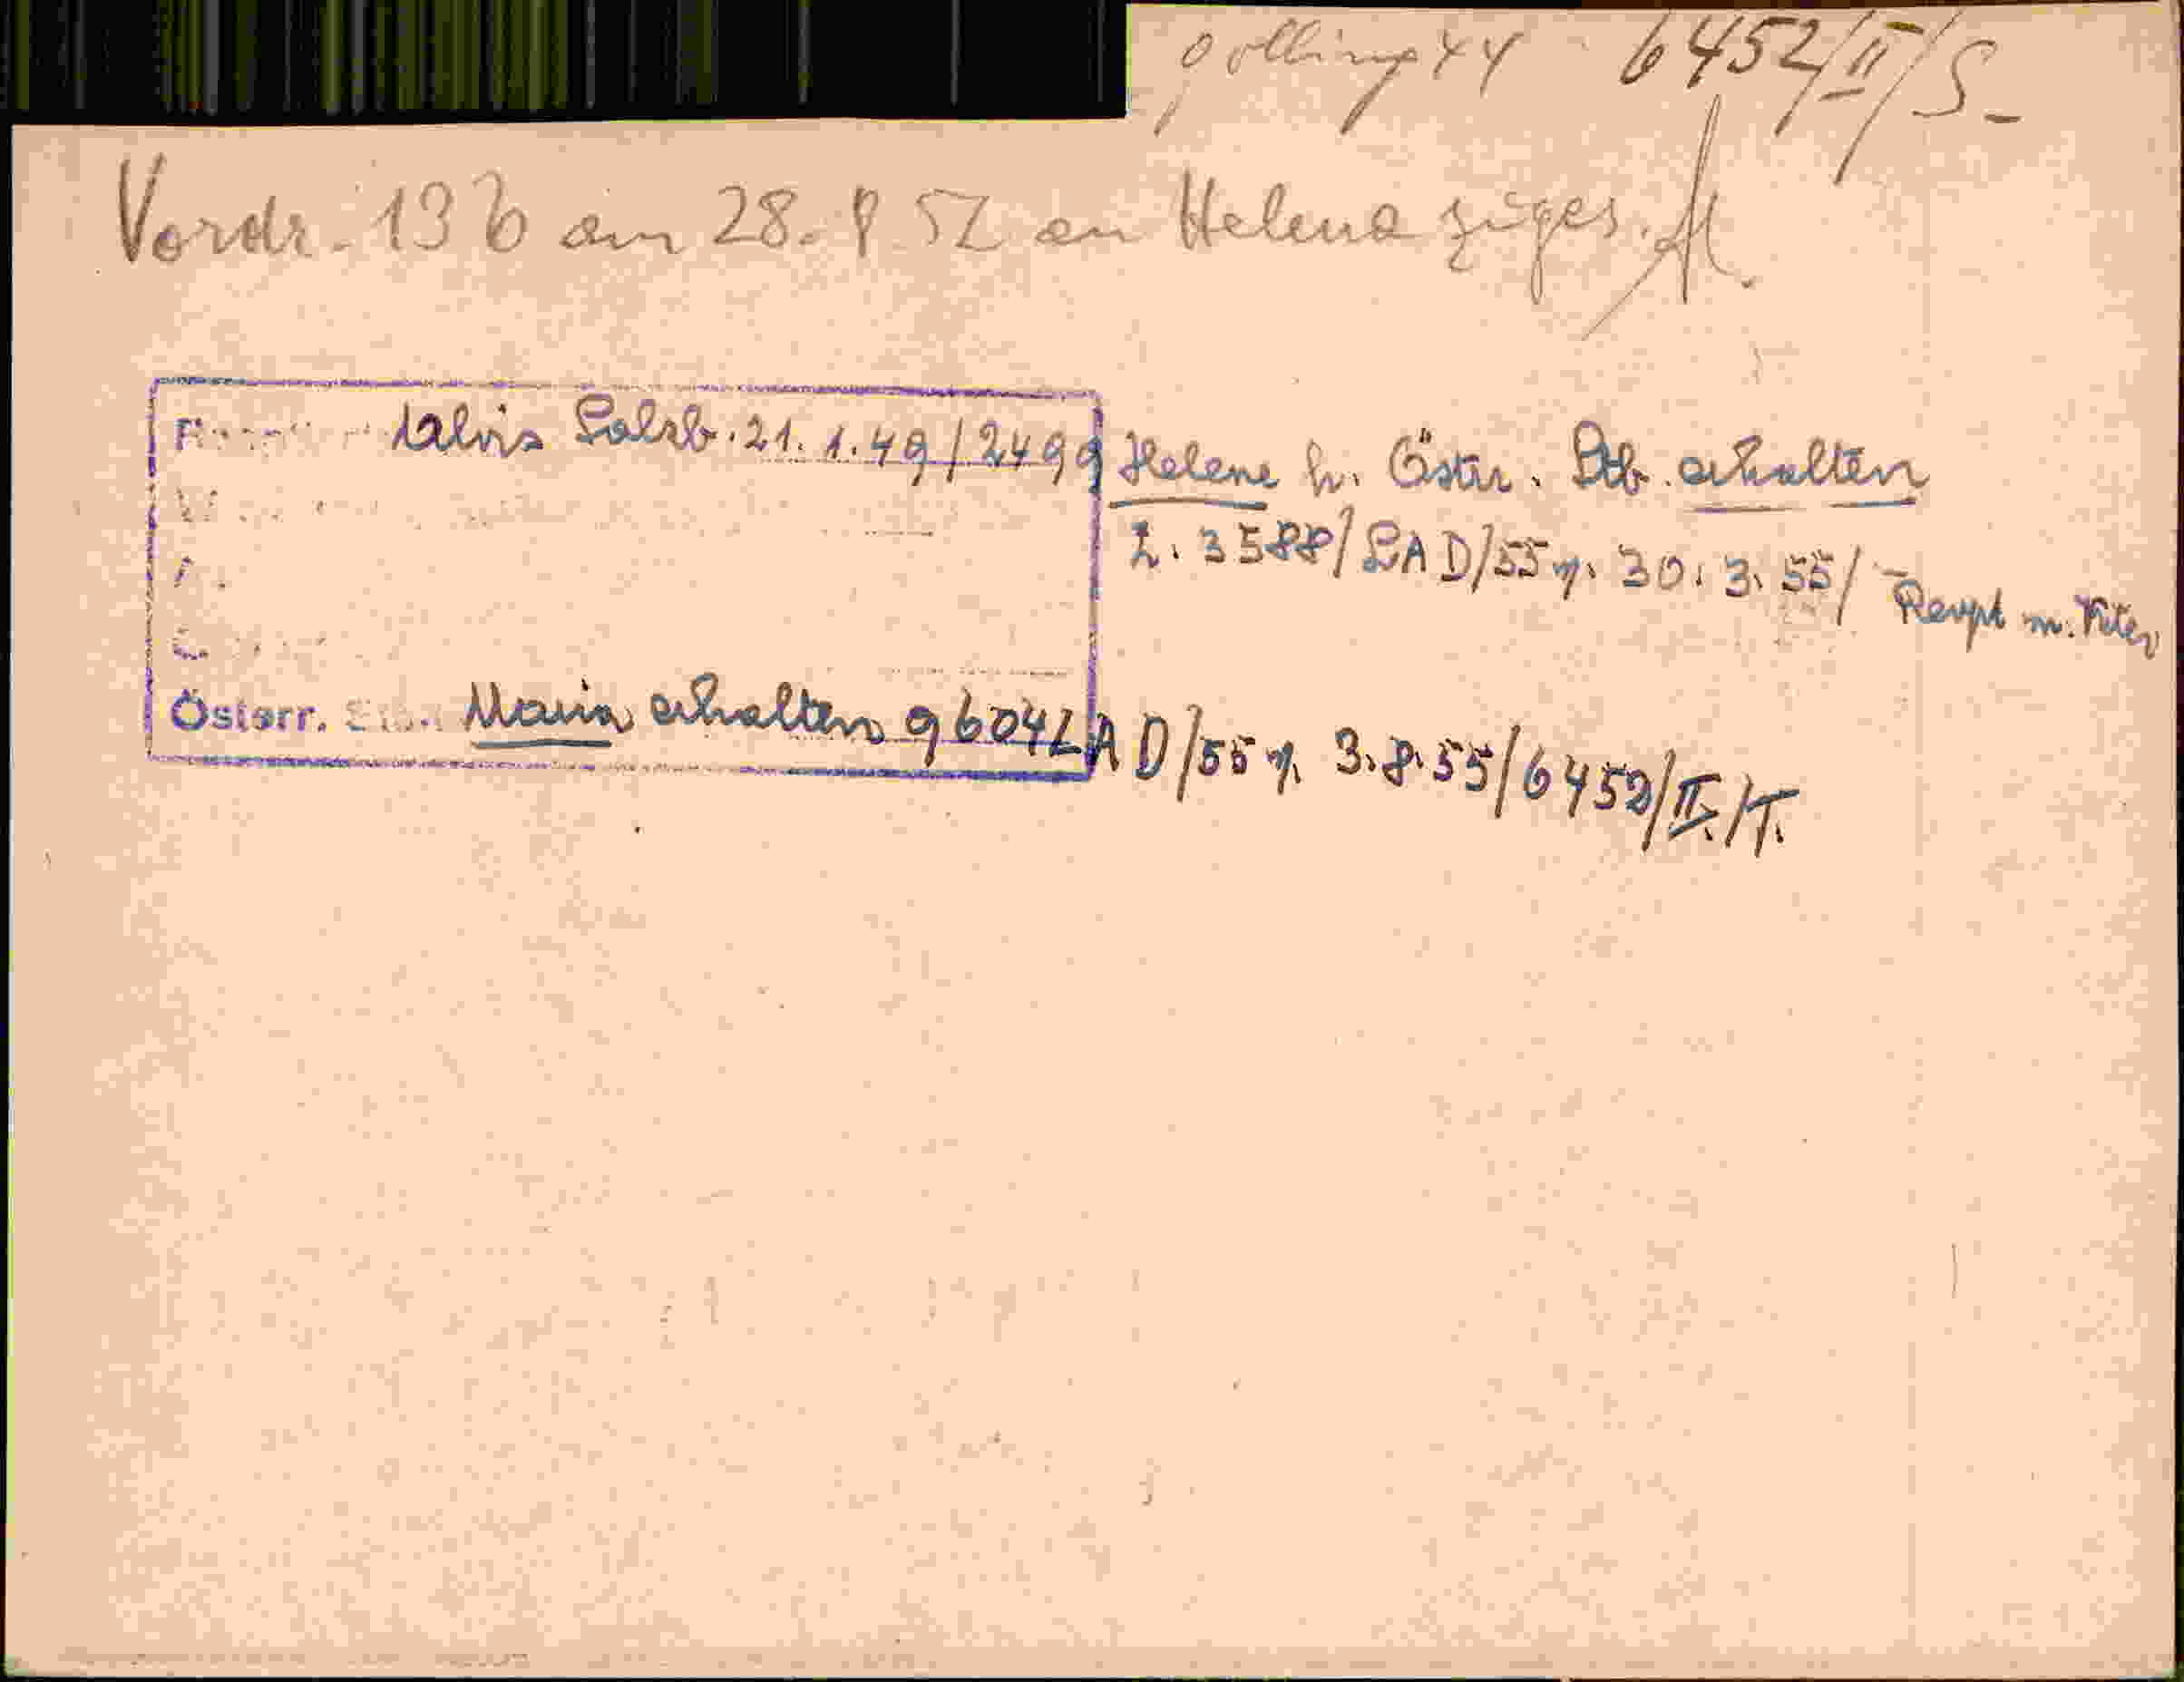 golling 44 6452/II/S-
Vordr. 13b am 28. 8. 52 an Helena zuges.
Alois Salzb. 21. 1. 49/2499
Helene h. Östr. Stb. erhalten
Z. 3588/LAD/55 v. 30. 3. 55/ m. Vater
Österr. Stb. Maria erhalten 9604 LAD/55 v. 3.8.55/6452/II./T.